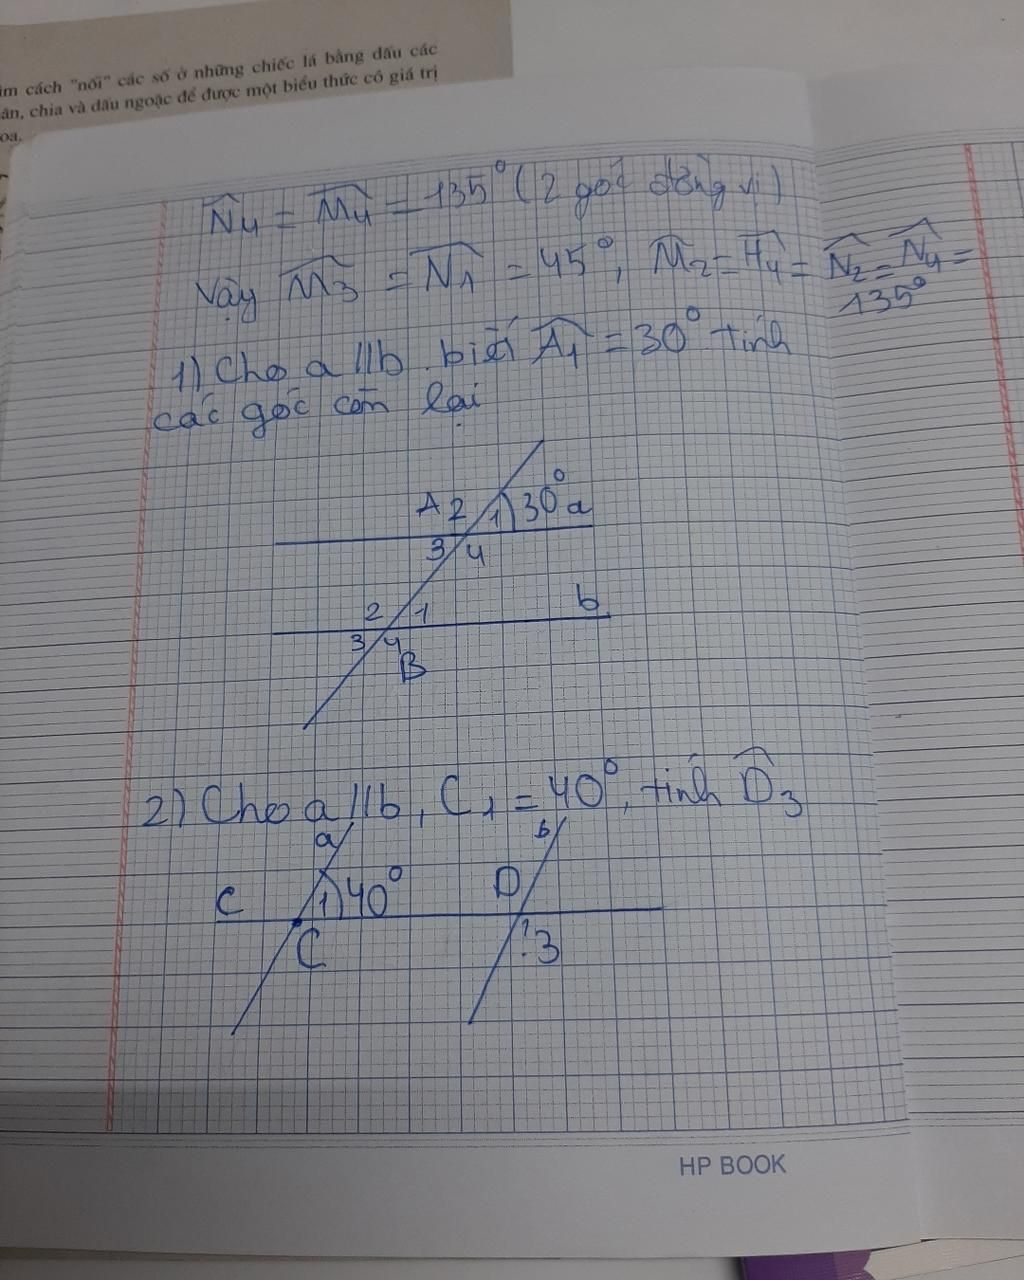 ìm cách "nối" các số ở những chiếc lá bằng dấu các
ân, chia và dấu ngoặc để được một biểu thức có giá trị
oa.
N̂4 = M̂4 = 135° (2 góc đồng vị)
Vậy M̂3 = N̂1 = 45°, M̂2 = M̂4 = N̂2 = N̂4 =
135°
1) Cho a // b. biết Â1 = 30° tính
các góc còn lại
A 2 1 30° a
3 4
2 1 b
3 4
B
2) Cho a // b, C1 = 40°, tính D̂3
a b
c 1 40° D
C ? 3
HP BOOK